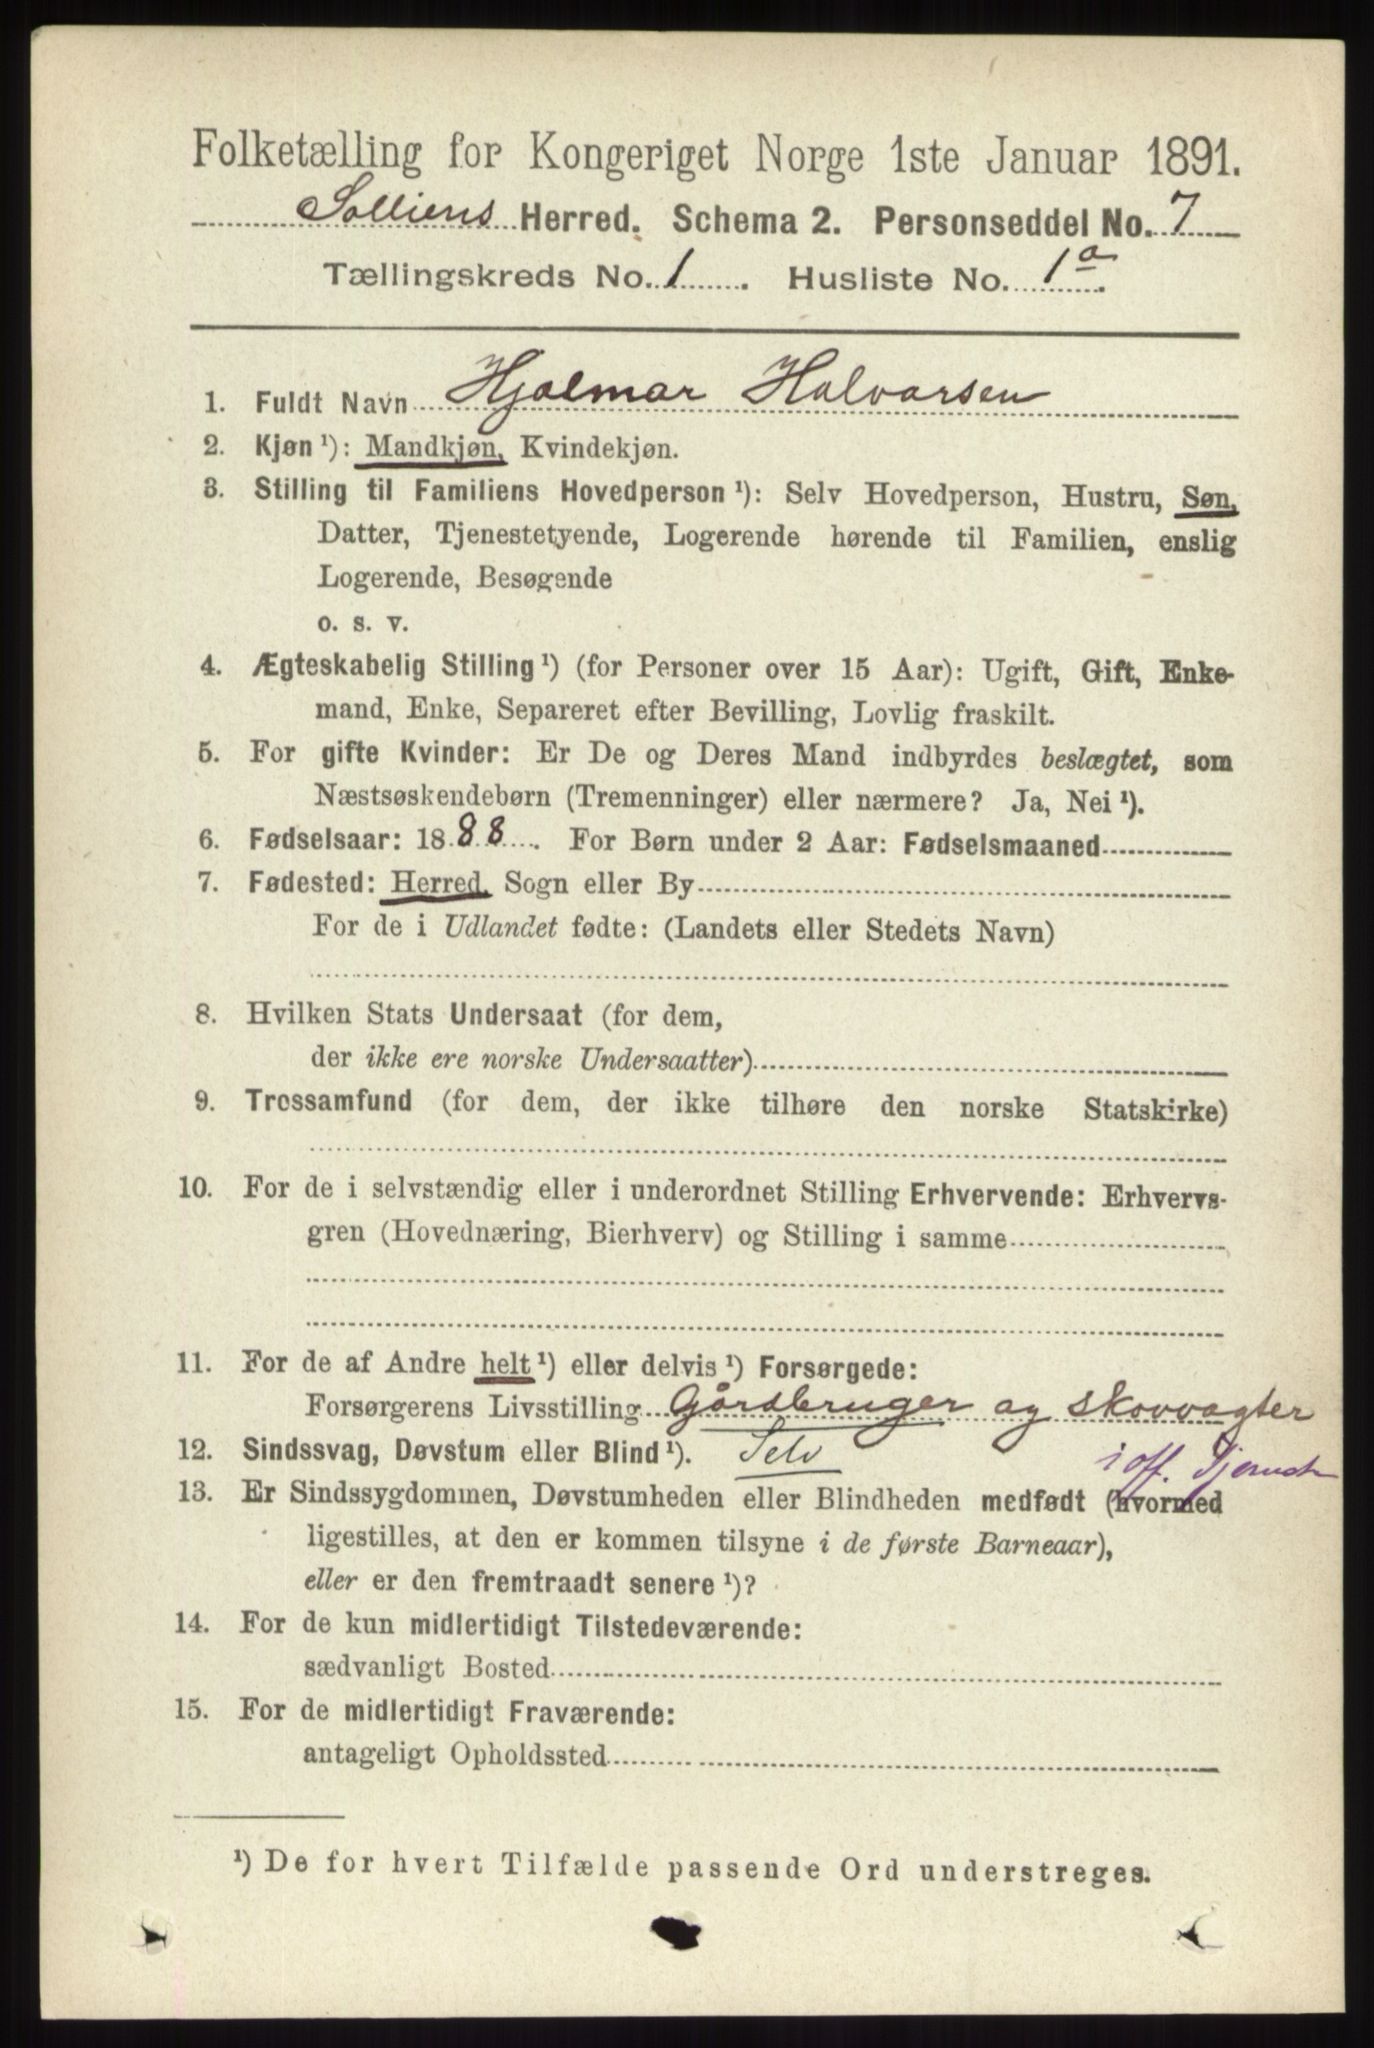 Folketælling for Kongeriget Norge 1ste Januar 1891.
Solliens Herred. Schema 2. Personseddel No. 7
Tællingskreds No. 1. Husliste No. 1a.
1. Fuldt Navn Hjalmar Halvarsen
2. Kjøn ¹): Mandkjøn, Kvindekjøn.
3. Stilling til Familiens Hovedperson ¹): Selv Hovedperson, Hustru, Søn,
Datter, Tjenestetyende, Logerende hørende til Familien, enslig
Logerende, Besøgende
o. s. v.
4. Ægteskabelig Stilling ¹) (for Personer over 15 Aar): Ugift, Gift, Enke-
mand, Enke, Separeret efter Bevilling, Lovlig fraskilt.
5. For gifte Kvinder: Er De og Deres Mand indbyrdes beslægtet, som
Næstsøskendebørn (Tremenninger) eller nærmere? Ja, Nei ¹).
6. Fødselsaar: 1888. For Børn under 2 Aar: Fødselsmaaned
7. Fødested: Herred, Sogn eller By
For de i Udlandet fødte: (Landets eller Stedets Navn)
8. Hvilken Stats Undersaat (for dem,
der ikke ere norske Undersaatter)
9. Trossamfund (for dem, der ikke tilhøre den norske Statskirke)
10. For de i selvstændig eller i underordnet Stilling Erhvervende: Erhvervs-
gren (Hovednæring, Bierhverv) og Stilling i samme
11. For de af Andre helt ¹) eller delvis ¹) Forsørgede:
Forsørgerens Livsstilling Gårdbruger og skovvagter
12. Sindssvag, Døvstum eller Blind ¹). Selv i off. Tjeneste
13. Er Sindssygdommen, Døvstumheden eller Blindheden medfødt (hvormed
ligestilles, at den er kommen tilsyne i de første Barneaar),
eller er den fremtraadt senere ¹)?
14. For de kun midlertidigt Tilstedeværende:
sædvanligt Bosted
15. For de midlertidigt Fraværende:
antageligt Opholdssted
¹) De for hvert Tilfælde passende Ord understreges.